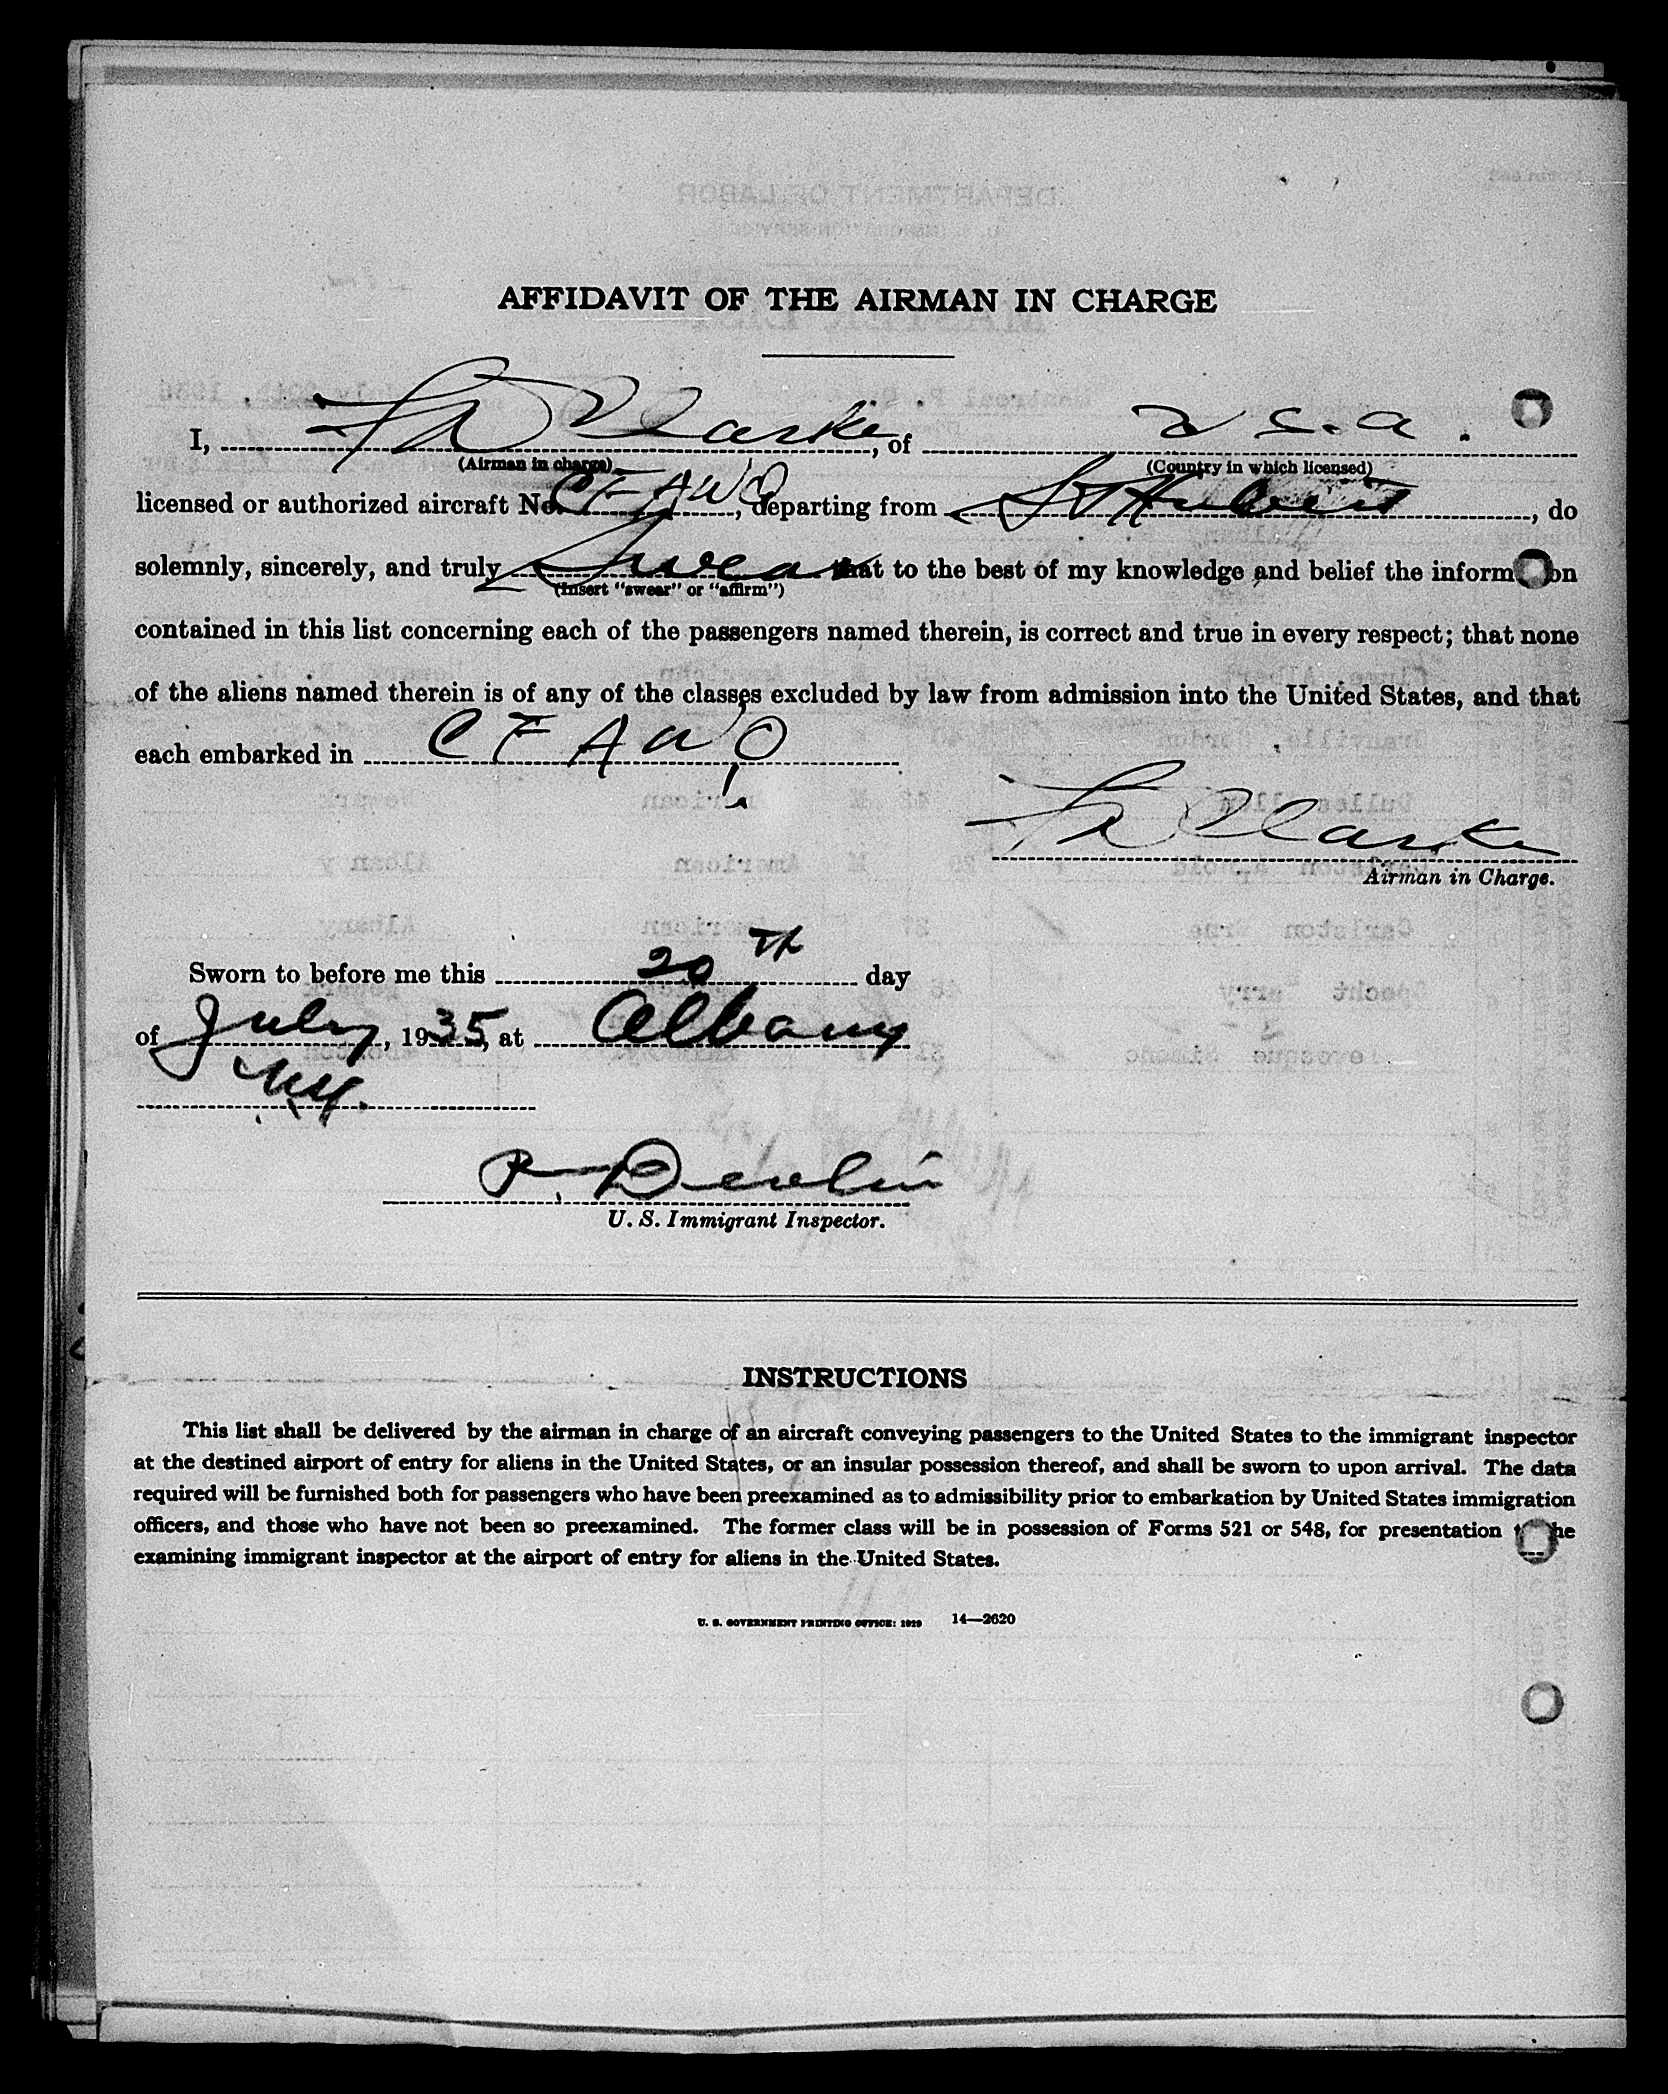 AFFIDAVIT OF THE AIRMAN IN CHARGE
I, Clarke, of U S. A.
(Airman in charge) (Country in which licensed)
licensed or authorized aircraft No. CFAWO, departing from St Hubert, do
solemnly, sincerely, and truly Swear that to the best of my knowledge and belief the information
(Insert "swear" or "affirm")
contained in this list concerning each of the passengers named therein, is correct and true in every respect; that none
of the aliens named therein is of any of the classes excluded by law from admission into the United States, and that
each embarked in CFAWO
Clarke
Airman in Charge.
Sworn to before me this 20th day
of July, 1935, at Albany
N.Y.
P. Devlin
U. S. Immigrant Inspector.
INSTRUCTIONS
This list shall be delivered by the airman in charge of an aircraft conveying passengers to the United States to the immigrant inspector
at the destined airport of entry for aliens in the United States, or an insular possession thereof, and shall be sworn to upon arrival. The data
required will be furnished both for passengers who have been preexamined as to admissibility prior to embarkation by United States immigration
officers, and those who have not been so preexamined. The former class will be in possession of Forms 521 or 548, for presentation to the
examining immigrant inspector at the airport of entry for aliens in the United States.
U. S. GOVERNMENT PRINTING OFFICE: 1929 14—2620